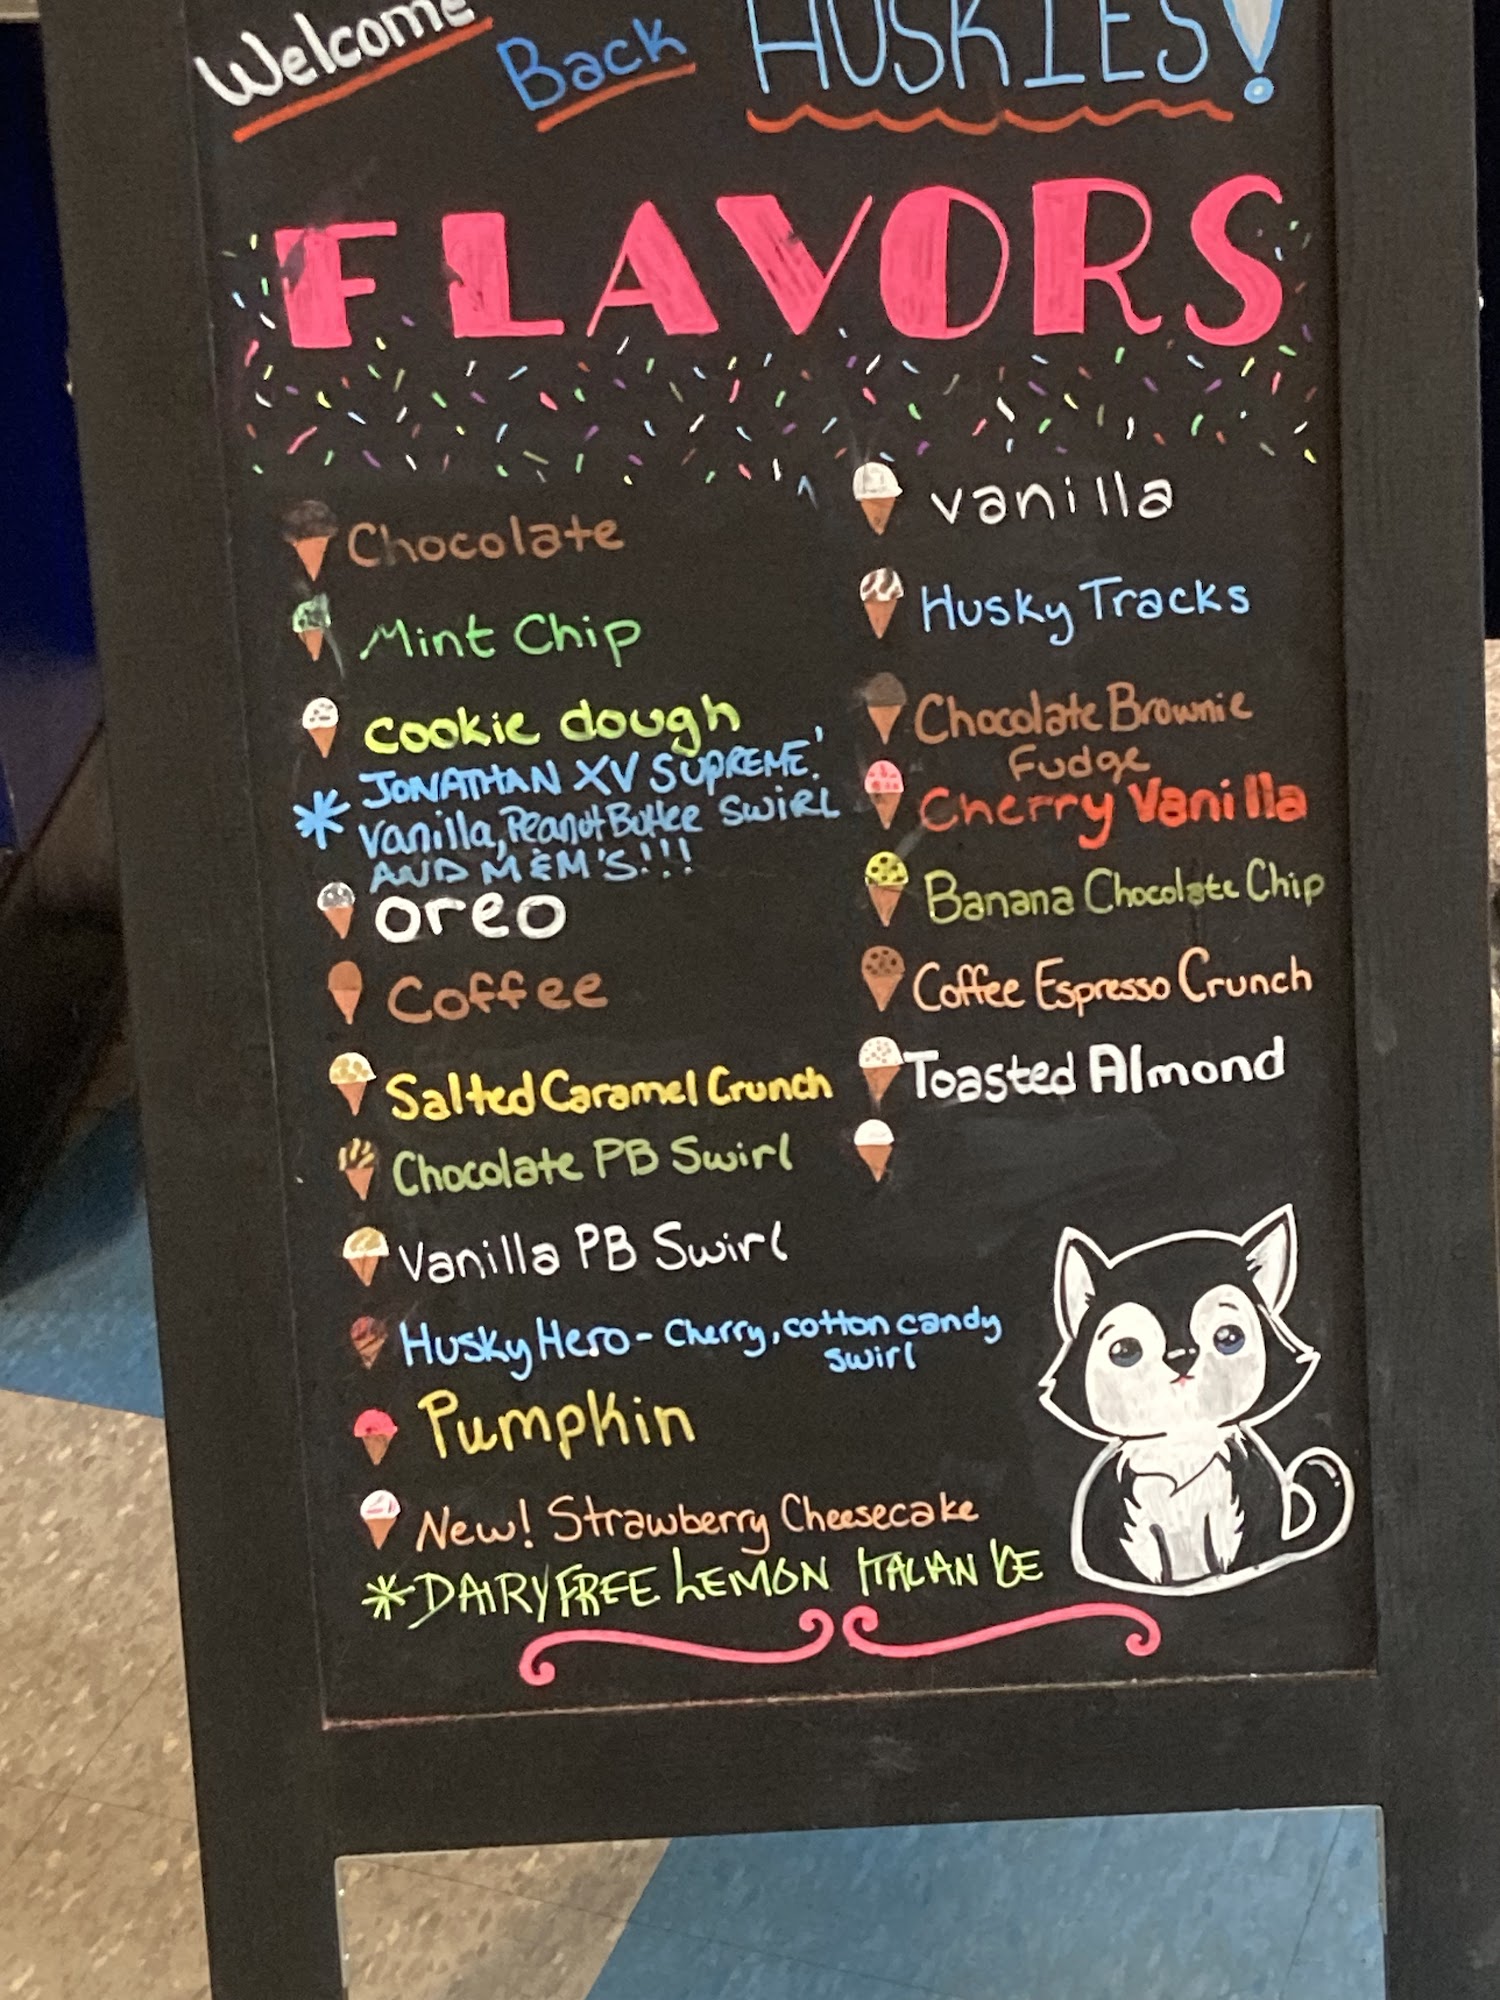 Welcome Back HUSKIES!
FLAVORS
Chocolate
Mint Chip
cookie dough
* JONATHAN XV SUPREME!
Vanilla, Peanut Butter SWIRL
AND M&M'S!!!
oreo
Coffee
Salted Caramel Crunch
Chocolate PB Swirl
Vanilla PB Swirl
Husky Hero - Cherry, cotton candy
swirl
Pumpkin
New! Strawberry Cheesecake
*DAIRY FREE LEMON ITALIAN ICE
vanilla
Husky Tracks
Chocolate Brownie
Fudge
Cherry Vanilla
Banana Chocolate Chip
Coffee Espresso Crunch
Toasted Almond